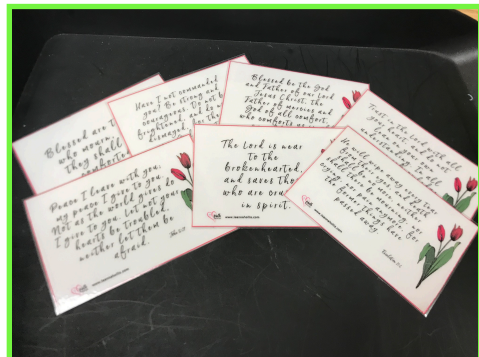 Blessed are t
who mourn,
they shall
comforte
Have I not commanded
you? Be strong and
courageous. Do not b
frightened, and do no
dismayed, for the
Blessed be the God
and Father of our Lord
Jesus Christ, the
Father of mercies and
God of all comfort,
who comforts us in
Trust in the Lord with all
your heart, and do not
lean on your own
Peace I leave with you,
my peace I give to you.
Not as the world gives do
I give to you. Let not your
hearts be troubled,
neither let them be
afraid.
The Lord is near
to the
brokenhearted,
and saves tho
who are cru
in spirit.
He will wipe away every tear
from their eyes, and death
shall be no more, neither
shall there be mourning, nor
crying, nor pain anymore, for
the former things have
passed away.